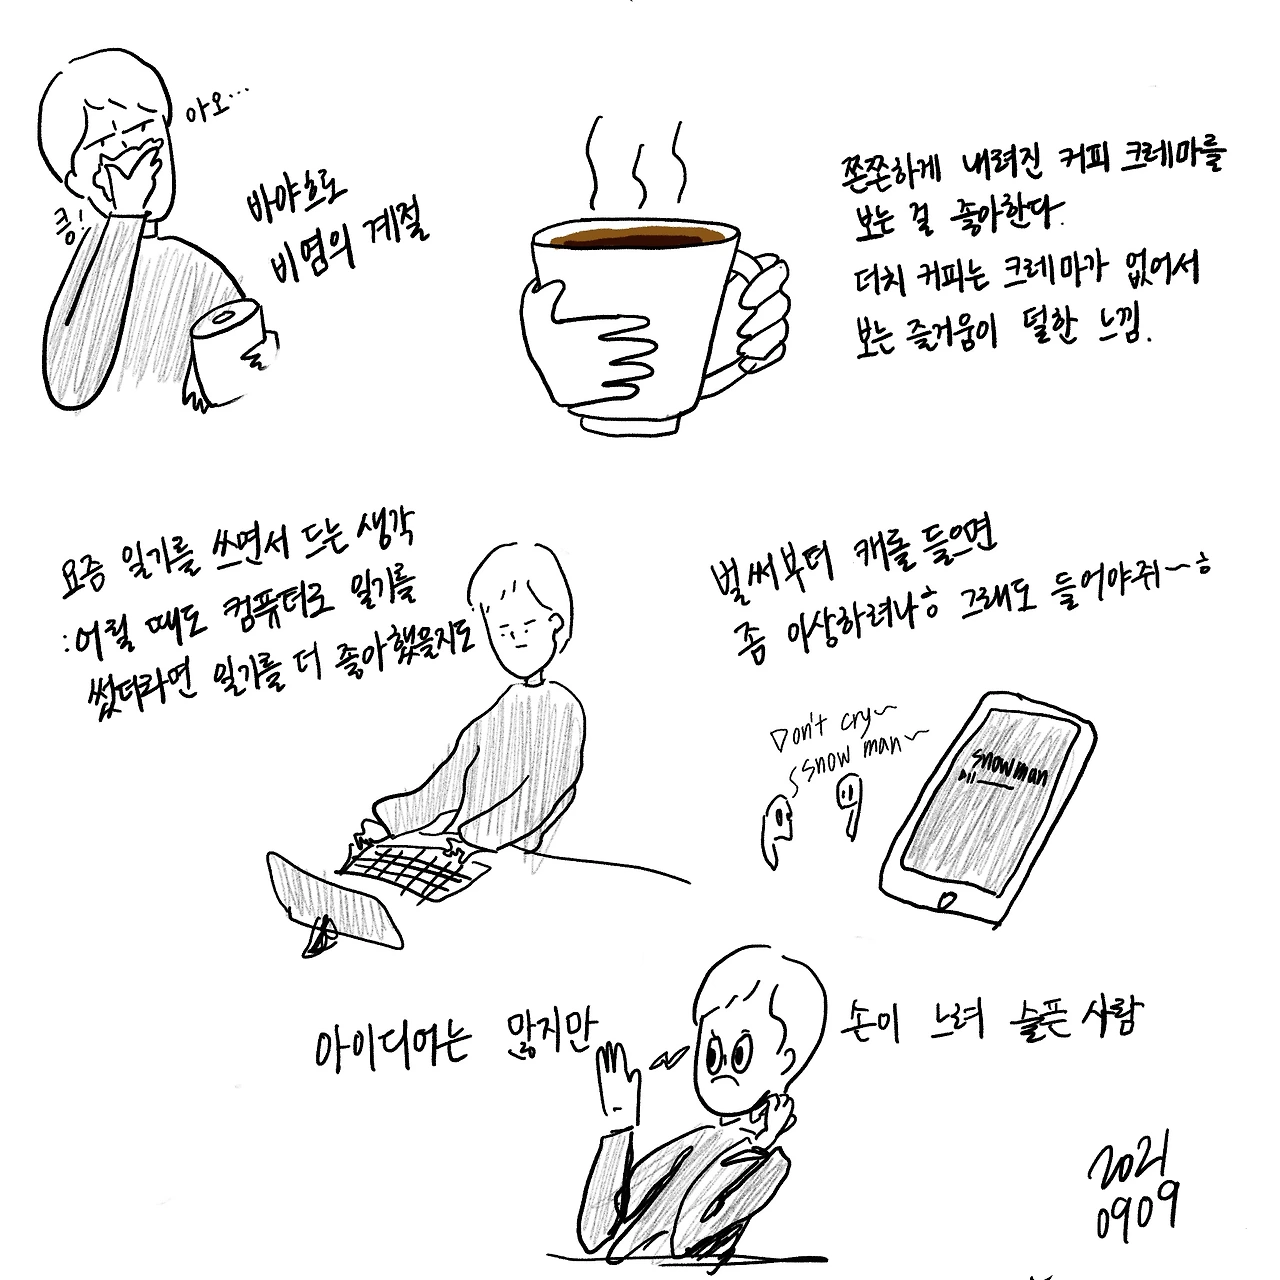 아오...
킁!
바야흐로
비염의 계절
쫀쫀하게 내려진 커피 크레마를
보는 걸 좋아한다.
더치 커피는 크레마가 없어서
보는 즐거움이 덜한 느낌.
요즘 일기를 쓰면서 드는 생각
:어릴 때도 컴퓨터로 일기를
썼더라면 일기를 더 좋아했을지도
벌써부터 캐롤 들으면
좀 이상하려나ㅎ 그래도 들어야쥐~ㅎ
Don't cry~
snow man~
snowman
아이디어는 많지만
손이 느려 슬픈 사람
2021
0909